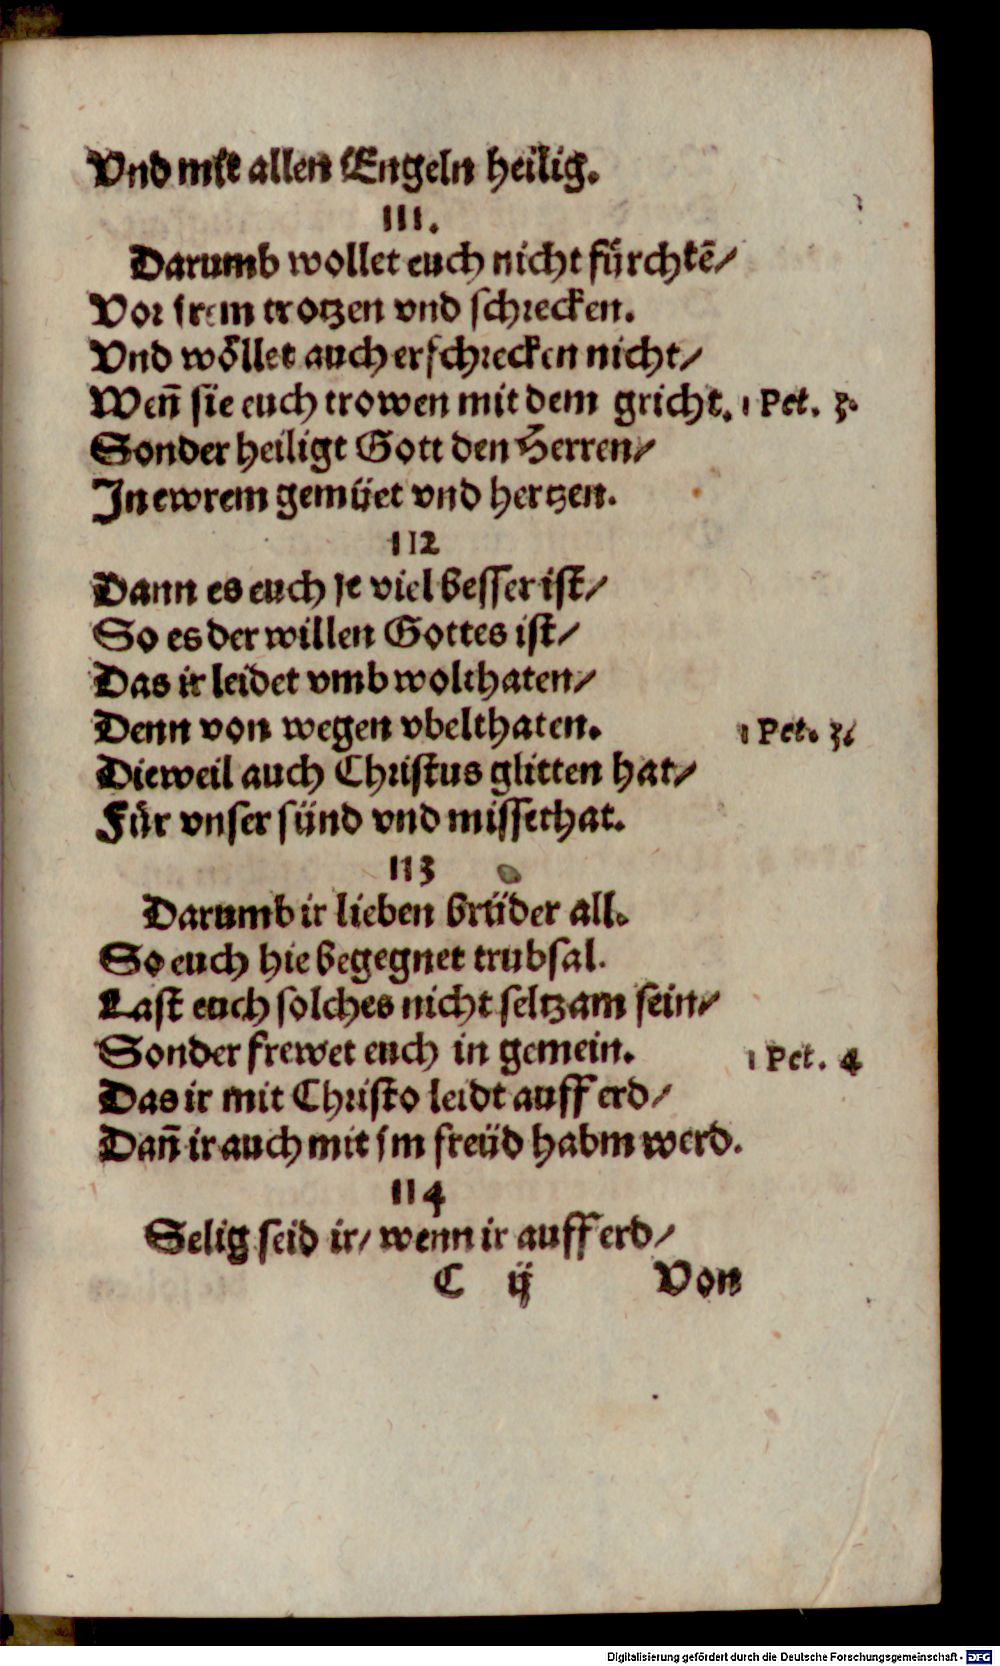 Vnd mit allen Engeln heilig.
111.
Darumb wollet euch nicht fürchtē/
Vor irem trotzen vnd schrecken.
Vnd wöllet auch erschrecken nicht/
Weñ sie euch trowen mit dem gricht. 1 Pet. 3.
Sonder heiligt Gott den Herren/
In ewrem gemüet vnd hertzen.
112
Dann es euch je viel besser ist/
So es der willen Gottes ist/
Das ir leidet vmb wolthaten/
Denn von wegen vbelthaten. 1 Pet. 3.
Dieweil auch Christus glitten hat/
Für vnser sünd vnd missethat.
113
Darumb ir lieben brüder all.
So euch hie begegnet trubsal.
Last euch solches nicht seltzam sein/
Sonder frewet euch in gemein. 1 Pet. 4
Das ir mit Christo leidt auff erd/
Dañ ir auch mit im freüd habm werd.
114
Selig seid ir/ wenn ir auff erd/
C ij Von
Digitalisierung gefördert durch die Deutsche Forschungsgemeinschaft - DFG